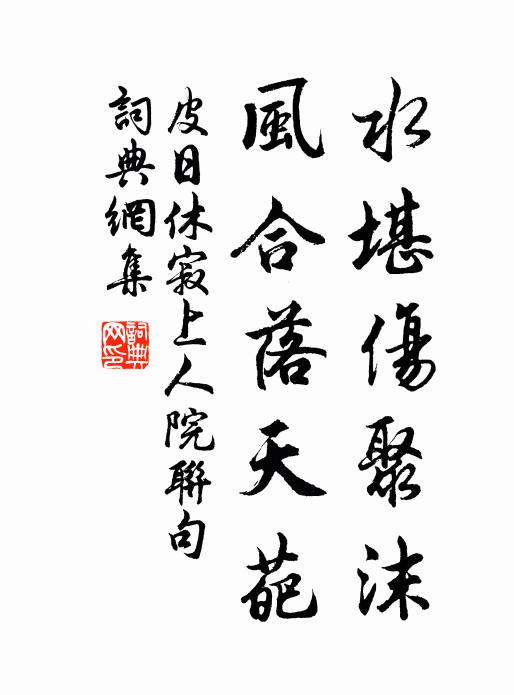 水堪傷聚沫
風合落天葩
皮日休寂上人院聯句
詞典網集
詞典網印